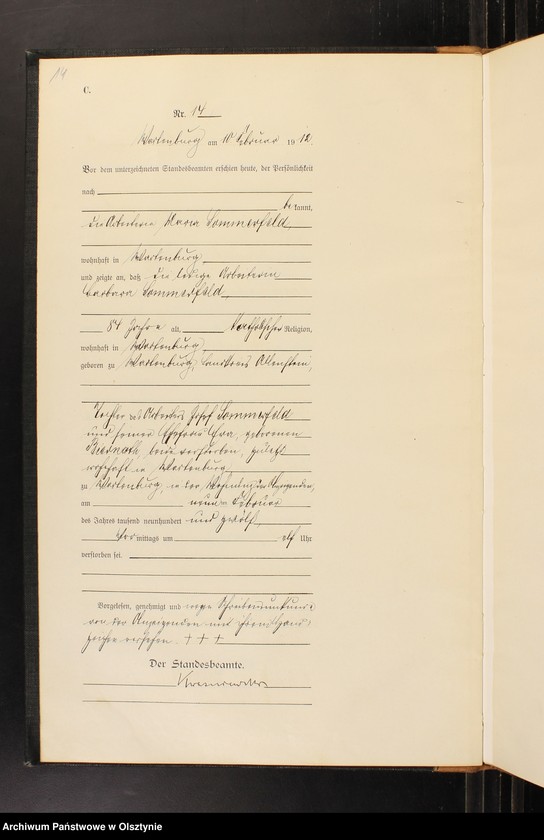 14
C.
Nr. 14
Wartenburg am 10. Februar 1912.
Vor dem unterzeichneten Standesbeamten erschien heute, der Persönlichkeit
nach
be kannt,
die Arbeiterin Maria Sommerfeld,
wohnhaft in Wartenburg
und zeigte an, daß die ledige Arbeiterin
Barbara Sommerfeld,
84 Jahre alt, katholischer Religion,
wohnhaft in Wartenburg
geboren zu Wartenburg, Landkreis Allenstein,
Tochter des Arbeiters Josef Sommerfeld
und seiner Ehefrau Eva, geborenen
beide verstorben, zuletzt
wohnhaft in Wartenburg
zu Wartenburg, in der Wohnung der Anzeigenden,
am neunten Februar
des Jahres tausend neunhundert und zwölf
Vormittags um elf Uhr
verstorben sei.
Vorgelesen, genehmigt und wegen Schreibensunkunde
von der Anzeigenden mit ihrem Hand-
zeichen versehen. + + +
Der Standesbeamte.
Archiwum Państwowe w Olsztynie